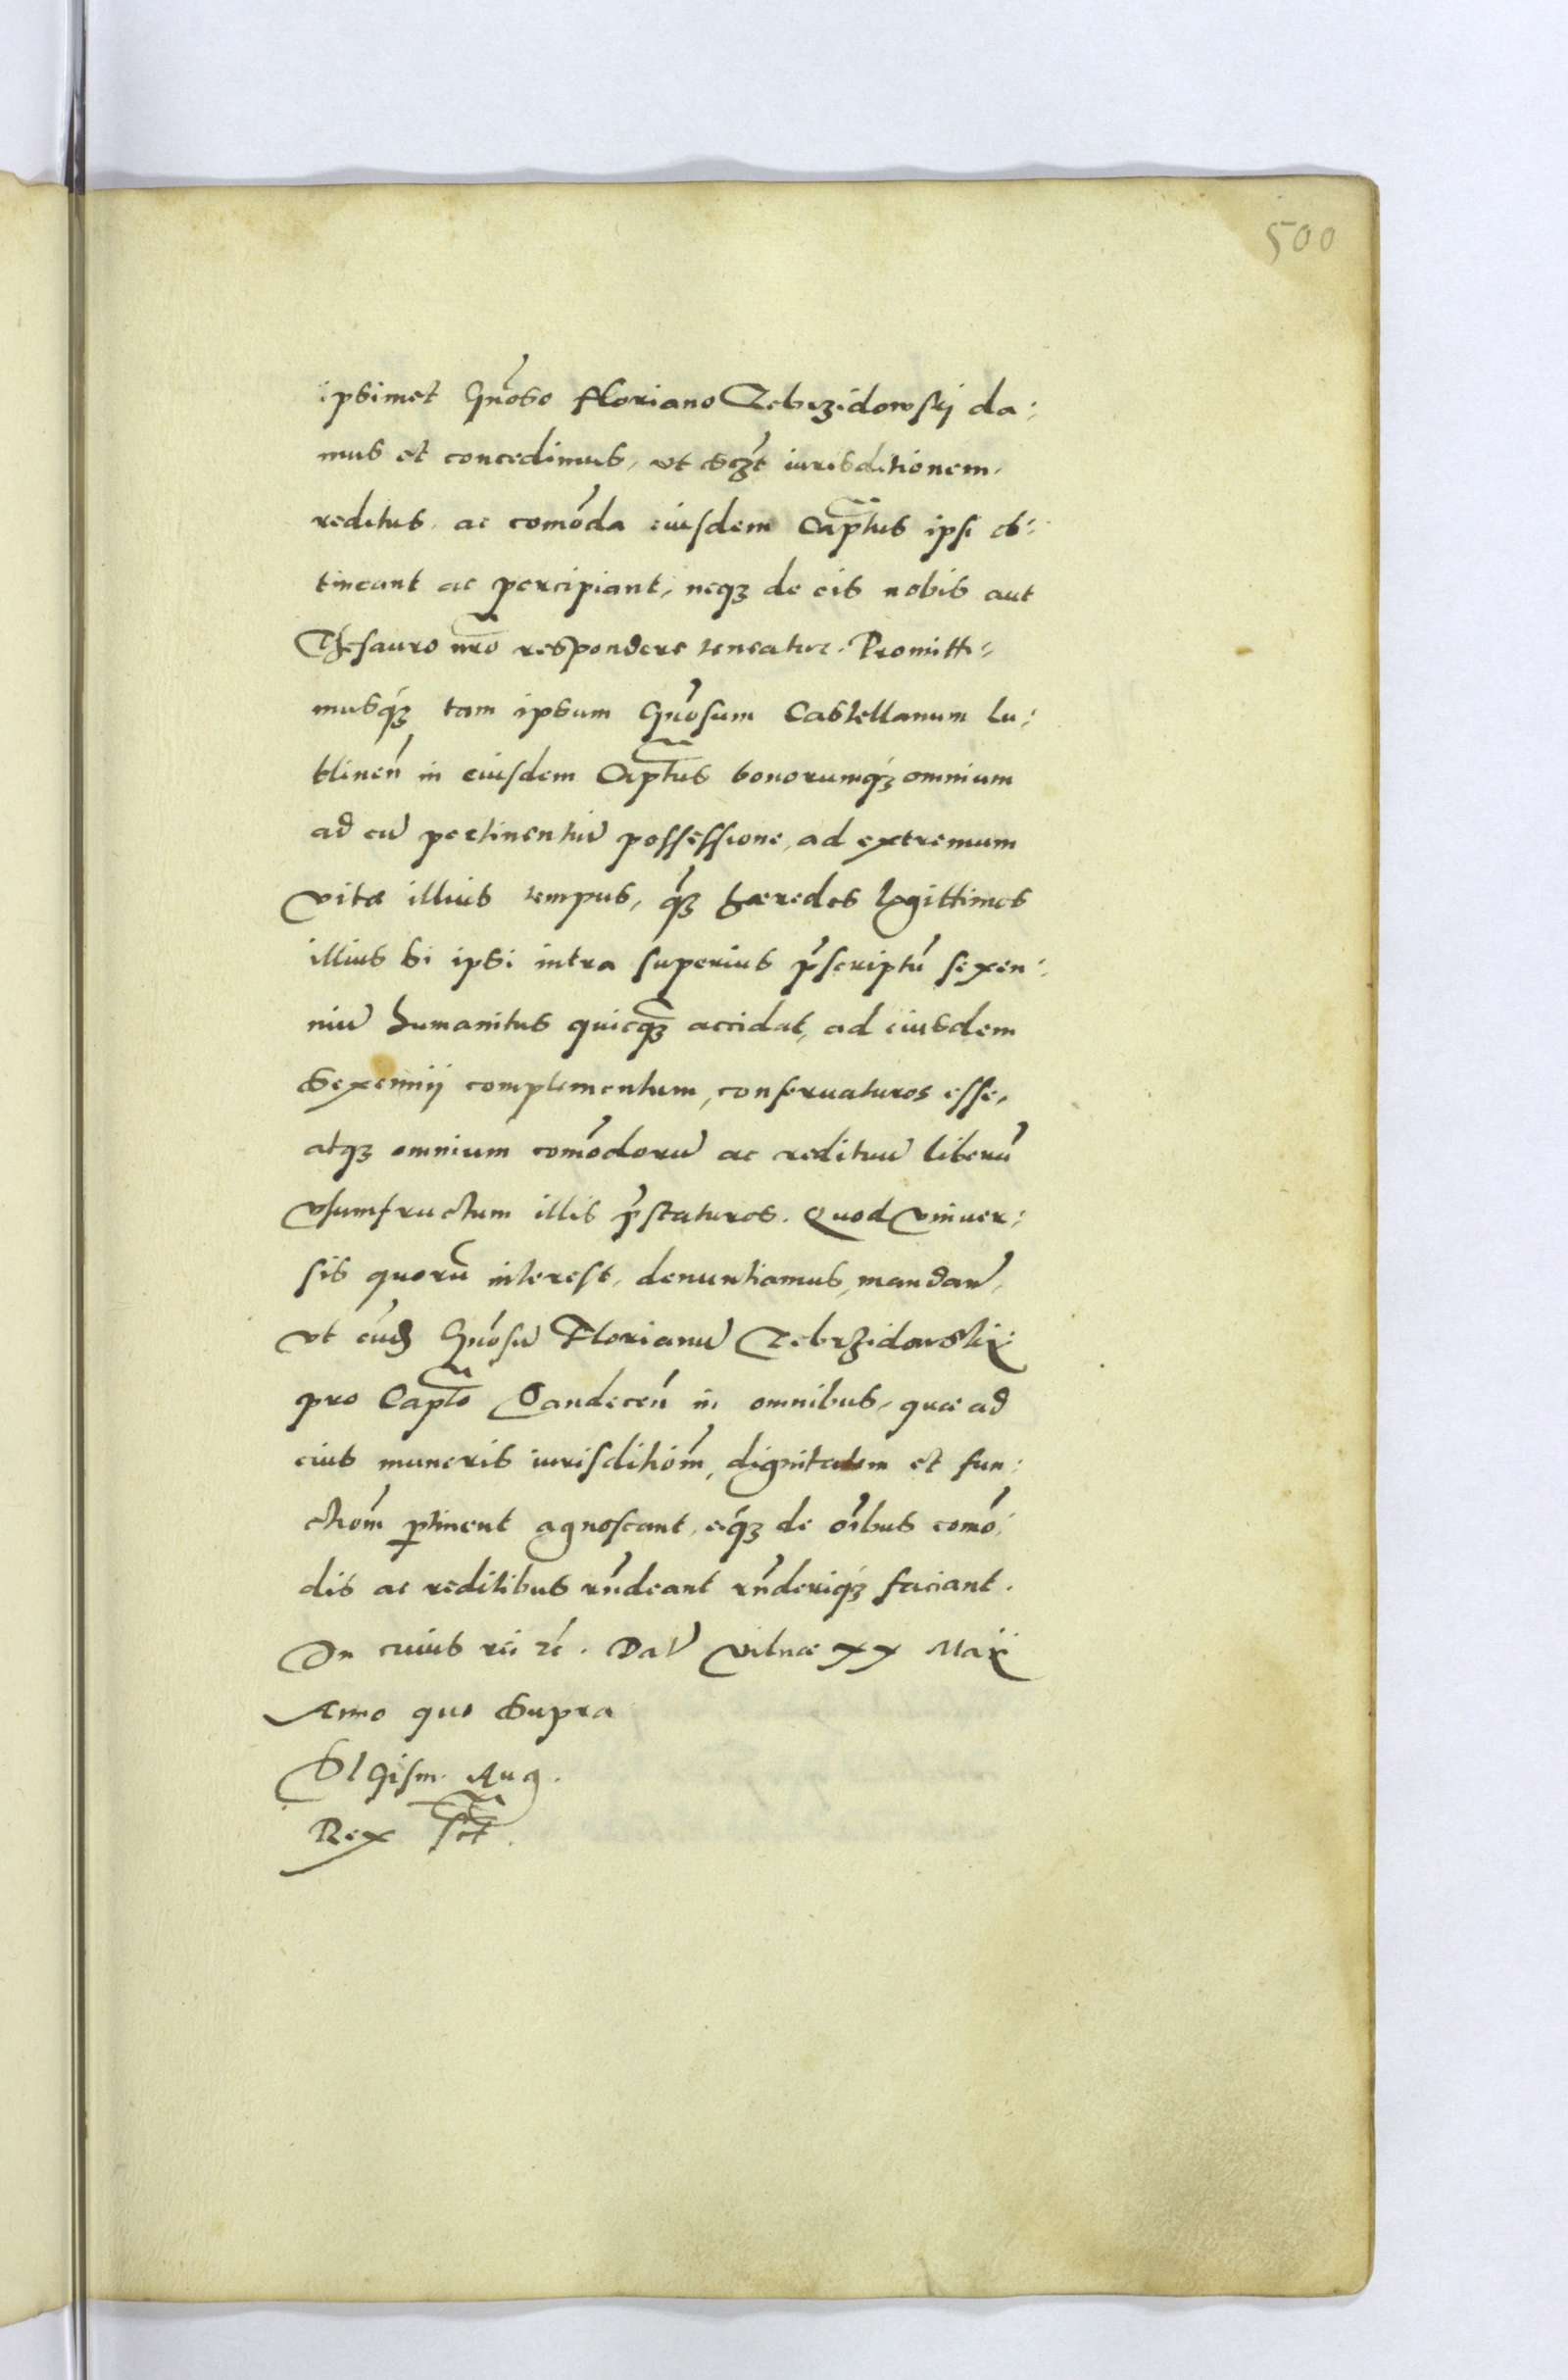 500
ipsimet Gnōso Floriano Zebrzidowskij da:
mus et concedimus, vt scꝫt iurisditionem,
reditus, ac comōda eiusdem Capt̃us ipsi ob:
tineant ac percipiant, neqꝫ de eis nobis aut
Thesauro nr̃o respondere teneatur. Promitti:
musqꝫ tam ipsum Gnōsum Castellanum Lu:
blineñ in eiusdem Capt̃us bonorumqꝫ omnium
ad eū pertinentiū possessione, ad extremum
vitæ illius tempus, qꝫ hæredes legittimos
illius si ipsi intra superius p̄scriptū sexen:
niū humanitus quicqꝫ accidat, ad eiusdem
Sexennij complementum, conseruaturos esse,
atqꝫ omnium comōdorū ac redituū liberū
vsumfructum illis p̄staturos. Quod vniuer:
sis quorū interest, denuntiamus, mandan̄,
vt eūd Gnōsū Florianū Zebrzidowskij
pro Capt̃o Sandeceñ in omnibus, quæ ad
eius muneris iurisditiom̄, dignitatem et fun:
ctiom̄ ꝑtinent agnoscant, eiqꝫ de oībus comō:
dis ac reditibus rñdeant rñderiqꝫ faciant.
In cuius rei zc̄. Dat̄ Vilnæ xx Maij
Anno quo Supra
Sigism. Aug.
Rex sst.